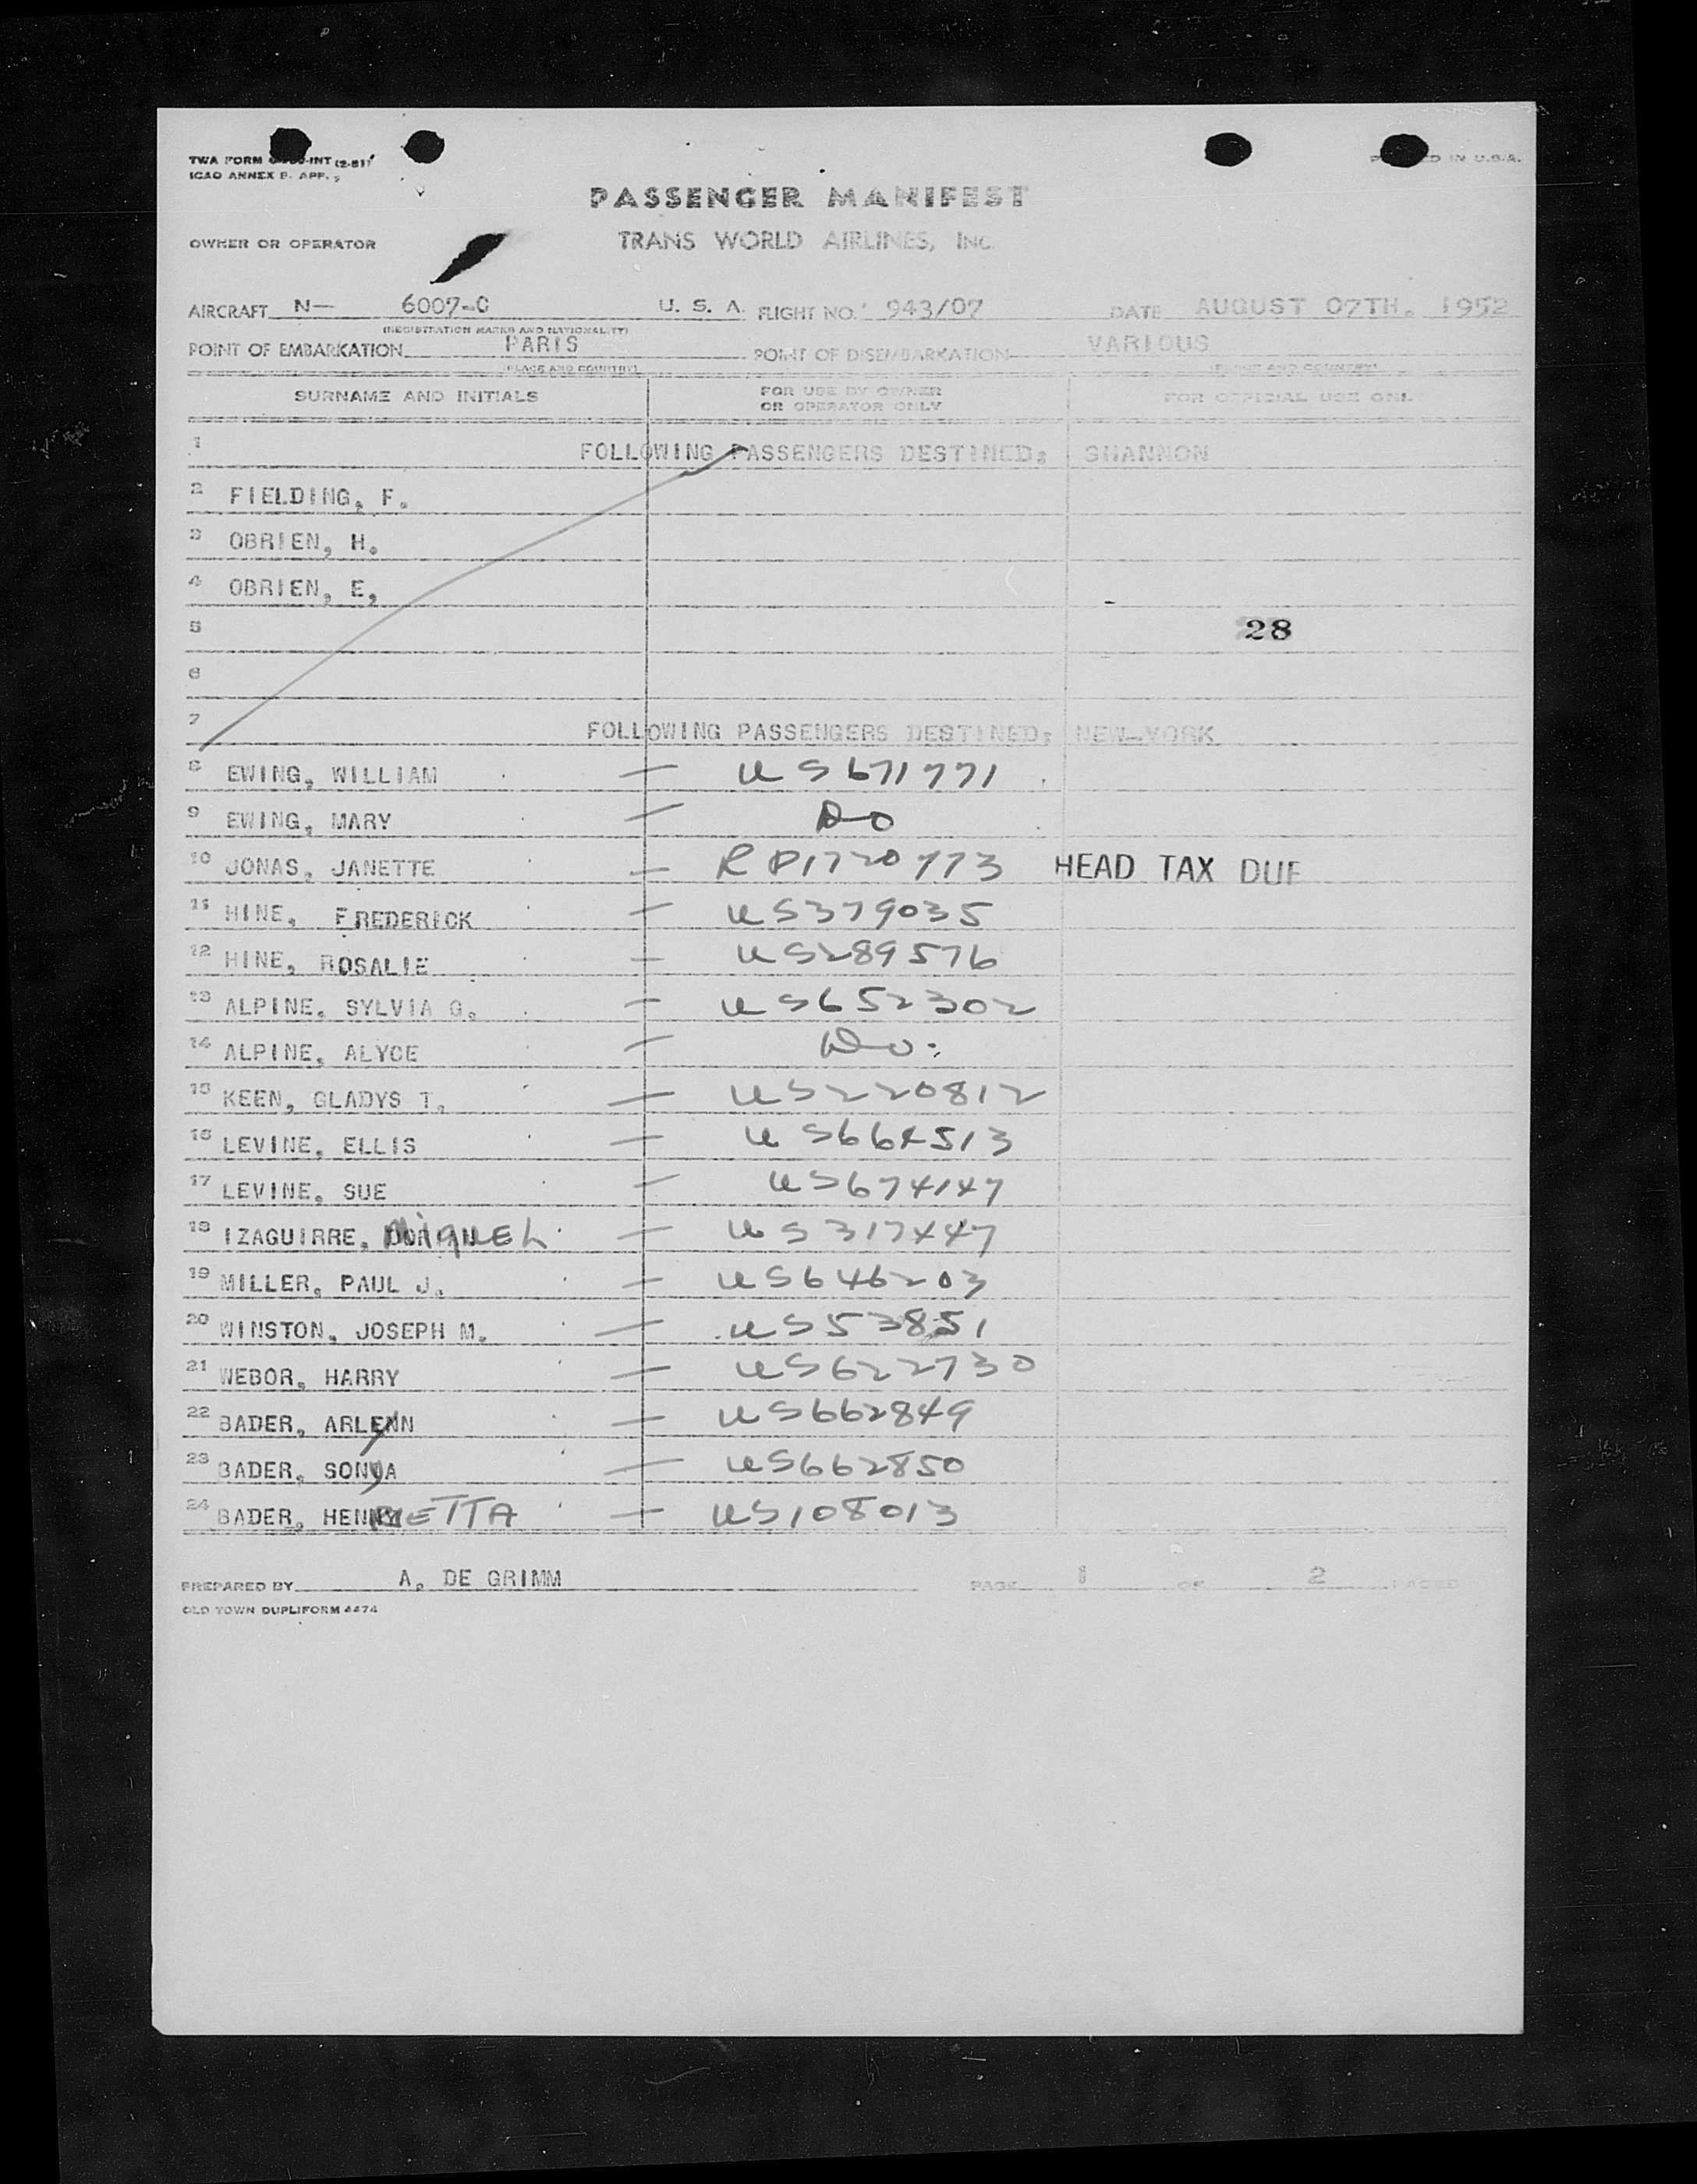 TWA FORM -INT (2-51)
ICAO ANNEX 9. APP.
PASSENGER MANIFEST
OWNER OR OPERATOR TRANS WORLD AIRLINES, INC
AIRCRAFT N— 6007-C U. S. A. FLIGHT NO. 943/07 DATE AUGUST 07TH. 1952
(REGISTRATION MARKS AND NATIONALITY)
POINT OF EMBARKATION PARIS POINT OF DISEMBARKATION VARIOUS
(PLACE AND COUNTRY) (PLACE AND COUNTRY)
SURNAME AND INITIALS FOR USE BY OWNER OR OPERATOR ONLY FOR OFFICIAL USE ONLY
1 FOLLOWING PASSENGERS DESTINED: SHANNON
2 FIELDING, F.
3 OBRIEN, H.
4 OBRIEN, E,
5 28
6
7 FOLLOWING PASSENGERS DESTINED: NEW-YORK
8 EWING, WILLIAM — US671771
9 EWING, MARY — Do
10 JONAS, JANETTE — RP1720773 HEAD TAX DUE
11 HINE, FREDERICK — US379035
12 HINE, ROSALIE — US289576
13 ALPINE, SYLVIA G. — US652302
14 ALPINE, ALYCE — Do.
15 KEEN, GLADYS T. — US220812
16 LEVINE, ELLIS — US664513
17 LEVINE, SUE — US674147
18 IZAGUIRRE, MiguEL — US317447
19 MILLER, PAUL J. — US646203
20 WINSTON, JOSEPH M. — US53851
21 WEBOR, HARRY — US622730
22 BADER, ARLYNN — US662849
23 BADER, SONYA — US662850
24 BADER, HENRIETTA — US108013
PREPARED BY A. DE GRIMM PAGE 1 OF 2 PAGES
OLD TOWN DUPLIFORM 4474